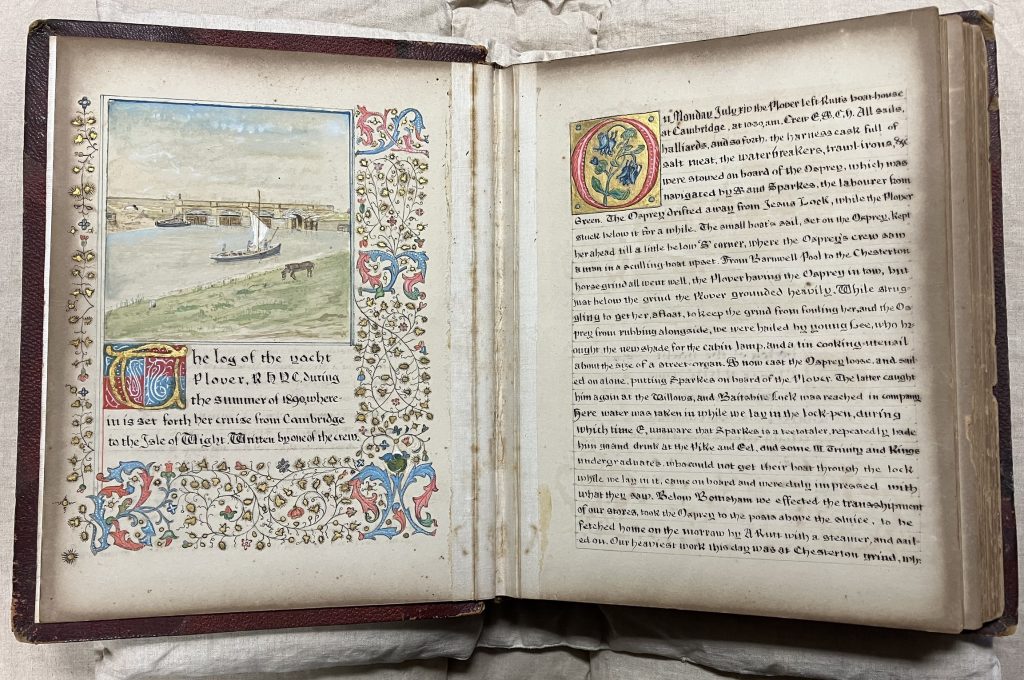 The log of the yacht
Plover, R H Y C, during
the summer of 1890, where-
in is set forth her cruise from Cambridge
to the Isle of Wight Written by one of the crew.
On Monday July the Plover left Rutt's boat-house
at Cambridge, at 10.30 am. Crew E.A.C.H. All sails,
halliards, and so forth, the harness cask full of
salt meat, the waterbreakers, trawl-irons, &c
were stowed on board of the Osprey, which was
navigated by and Sparkes, the labourer from
Green. The Osprey drifted away from Jesus Lock, while the Plover
stuck below it for a while. The small boat's sail, set on the Osprey, kept
her ahead till a little below corner, where the Osprey's crew saw
a man in a sculling boat upset. From Barnwell Pool to the Chesterton
horse grind all went well, the Plover having the Osprey in tow, but
just below the grind the Plover grounded heavily. While strug-
gling to get her, afloat, to keep the grind from fouling her, and the Os-
prey from rubbing alongside, we were hailed by young Lee, who br-
ought the new shade for the cabin lamp, and a tin cooking utensil
about the size of a street-organ. now cast the Osprey loose, and sail-
ed on alone, putting Sparkes on board of the Plover. The latter caught
him again at the Willows, and Baitsbite Lock was reached in company.
Here water was taken in while we lay in the lock-pen, during
which time E, unaware that Sparkes is a teetotaler, repeatedly bade
him and drink at the Pike and Eel, and some Trinity and Kings
undergraduates, who could not get their boat through the lock
while we lay in it, came on board and were duly impressed with
what they saw. Below Bottisham we effected the transshipment
of our stores, took the Osprey to the posts above the sluice, to be
fetched home on the morrow by A Rutt with a steamer, and sail-
ed on. Our heaviest work this day was at Chesterton grind, wh-